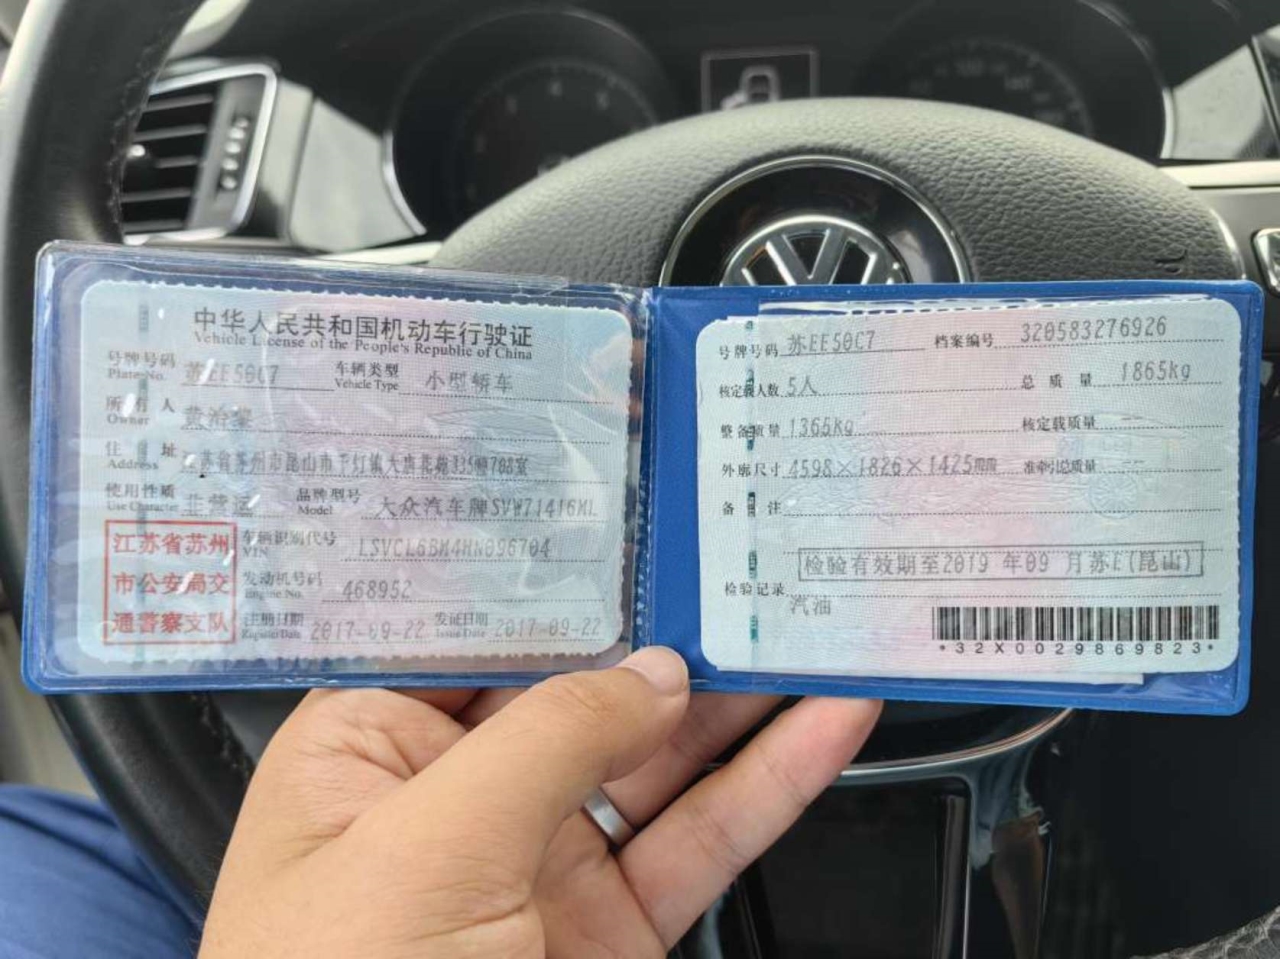 中华人民共和国机动车行驶证
Vehicle License of the People's Republic of China
号牌号码 苏EE50C7 车辆类型 小型轿车
Plate No. Vehicle Type
所有人 黄治
Owner
住址 江苏省苏州市昆山市千灯镇大唐花
Address
使用性质 非营运 品牌型号 大众汽车牌SVW71416ML
Use Character Model
江苏省苏州
市公安局交
通警察支队
车辆识别代号 LSVCL6BM4HN096704
VIN
发动机号码 468952
Engine No.
注册日期 2017-09-22 发证日期 2017-09-22
Register Date Issue Date
号牌号码 苏EE50C7 档案编号 320583276926
核定载人数 5人 总质量 1865kg
整备质量 1365kg 核定载质量 --
外廓尺寸 4598×1826×1425mm 准牵引总质量 --
备注
检验有效期至2019 年09 月苏E(昆山)
检验记录
汽油
*32X0029869823*